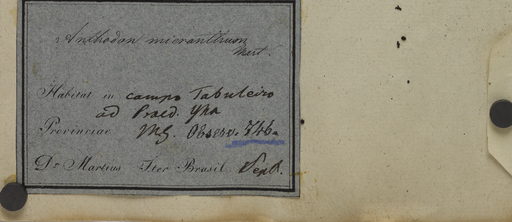 Anthodon micranthum
Mart.
Habitat in campo Tabuleiro
ad Praed. Yha
Provinciae MG. Observ. 746
Dr Martius Iter Brasil. Sept.